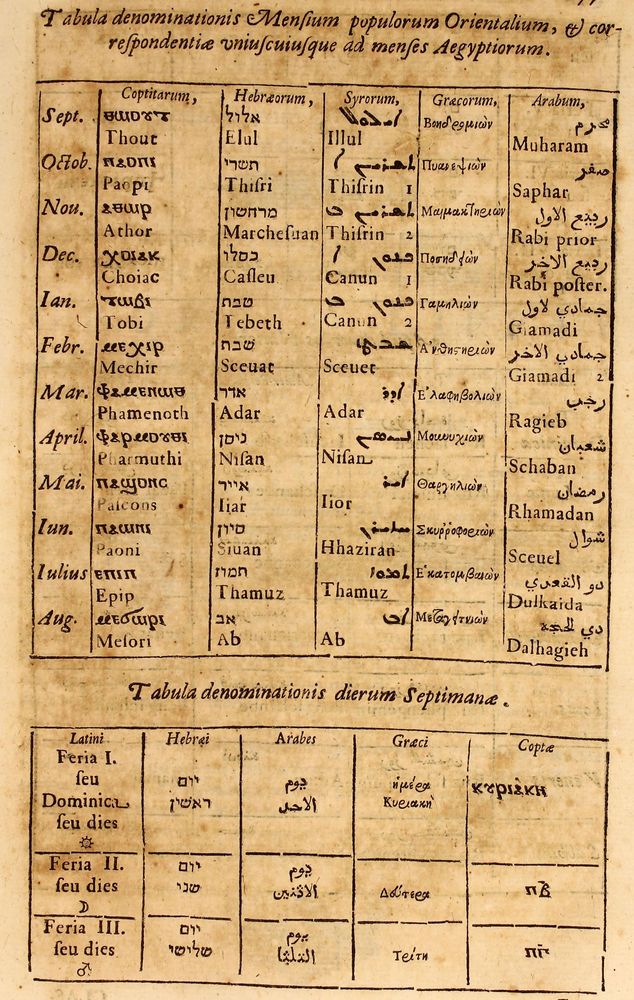 Tabula denominationis Mensium populorum Orientalium, & cor-
respondentiæ vniuscuiusque ad menses Aegyptiorum.
Coptitarum, Hebræorum, Syrorum, Græcorum, Arabum,
Sept. ⲑⲱⲟⲩⲧ אלול Βοηδρομιών محرم
Thout Elul Illul Muharam
Octob. ⲡⲁⲟⲡⲓ תשרי Πυανεψιών صفر
Paopi Thisri Thisrin 1 Saphar
Nov. ⲁⲑⲱⲣ מרחשון Μαιμακτηριών ربيع الاول
Athor Marchesuan Thisrin 2 Rabi prior
Dec. ⲭⲟⲓⲁⲕ כסלו Ποσηδεών ربيع الاخر
Choiac Casleu Canun 1 Rabi poster.
Ian. ⲧⲱⲃⲓ טבת Γαμηλιών جمادي لاول
Tobi Tebeth Canun 2 Giamadi
Febr. ⲙⲉⲭⲓⲣ שבת Ἀνθηστηριών جمادي الاخر
Mechir Sceuat Sceuet Giamadi 2
Mar. ⲫⲁⲙⲉⲛⲱⲑ אדר Ἐλαφηβολιών رجب
Phamenoth Adar Adar Ragieb
April. ⲫⲁⲣⲙⲟⲩⲑⲓ ניסן Μουνυχιών شعبان
Pharmuthi Nisan Nisan Schaban
Mai. ⲡⲁϣⲟⲛⲥ אייר Θαργηλιών رمضان
Pascons Iiar Iior Rhamadan
Iun. ⲡⲁⲱⲛⲓ סיון Σκυῤῥοφοριών شوال
Paoni Siuan Hhaziran Sceuel
Iulius ⲉⲡⲓⲡ תמוז Ἑκατομβαιών دو القعدي
Epip Thamuz Thamuz Dulkaida
Aug. ⲙⲉⲥⲱⲣⲓ אב Μεταγειτνιών دي الحجه
Mesori Ab Ab Dalhagieh
Tabula denominationis dierum Septimanæ.
Latini Hebræi Arabes Græci Coptæ
Feria I.
seu יום يوم ἡμέρα ⲕⲩⲣⲓⲁⲕⲏ
Dominica ראשון الاحد Κυριακὴ
seu dies
☼
Feria II. יום يوم
seu dies שני الاثنين Δευτέρα
☽
Feria III. יום يوم
seu dies שלישי الثلثا Τρίτη
♂